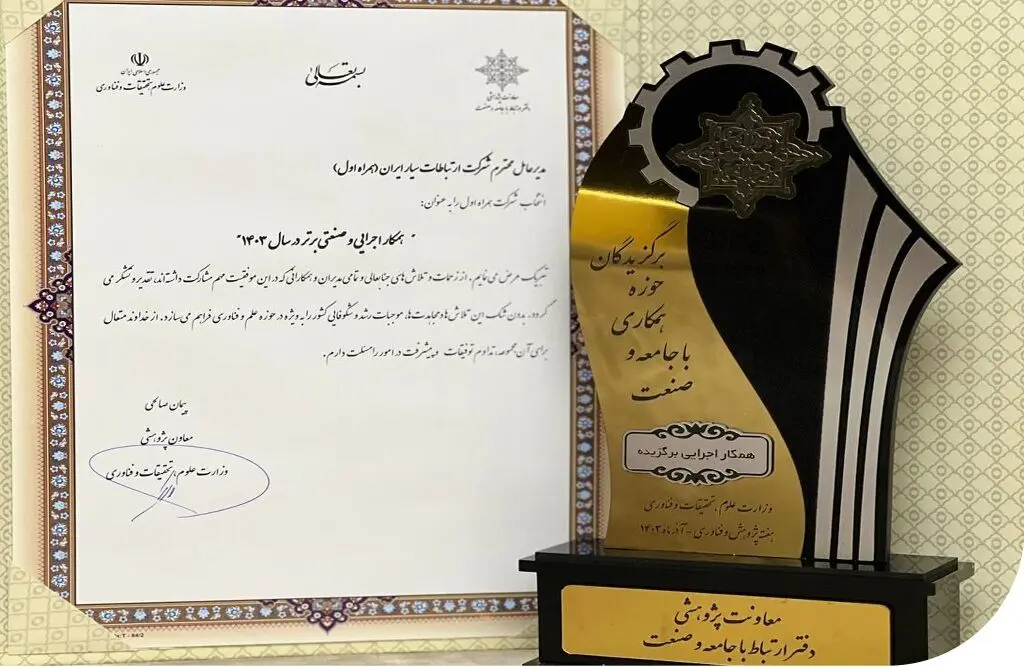 بسمه تعالی
جمهوری اسلامی ایران
وزارت علوم، تحقیقات و فناوری
معاونت پژوهشی
دفتر ارتباط با جامعه و صنعت
مدیر عامل محترم شرکت ارتباطات سیار ایران (همراه اول)
انتخاب شرکت همراه اول را به عنوان:
"همکار اجرایی و صنعتی برتر در سال ۱۴۰۳"
تبریک عرض می نمایم. از زحمات و تلاش های جنابعالی و تمامی مدیران و همکارانی که در این موفقیت مهم مشارکت داشته‌اند، تقدیر و تشکر می
گردد. بدون شک این تلاش ها و مجاهدت ها، موجبات رشد و شکوفایی کشور را به ویژه در حوزه علم و فناوری فراهم می سازد. از خداوند متعال
برای آن مجموعه، تداوم توفیقات و پیشرفت در امور را مسئلت دارم.
پیمان صالحی
معاون پژوهشی
وزارت علوم، تحقیقات و فناوری
برگزیدگان
حوزه
همکاری
با جامعه و
صنعت
همکار اجرایی برگزیده
وزارت علوم، تحقیقات و فناوری
هفته پژوهش و فناوری - آذر ماه ۱۴۰۳
معاونت پژوهشی
دفتر ارتباط با جامعه و صنعت